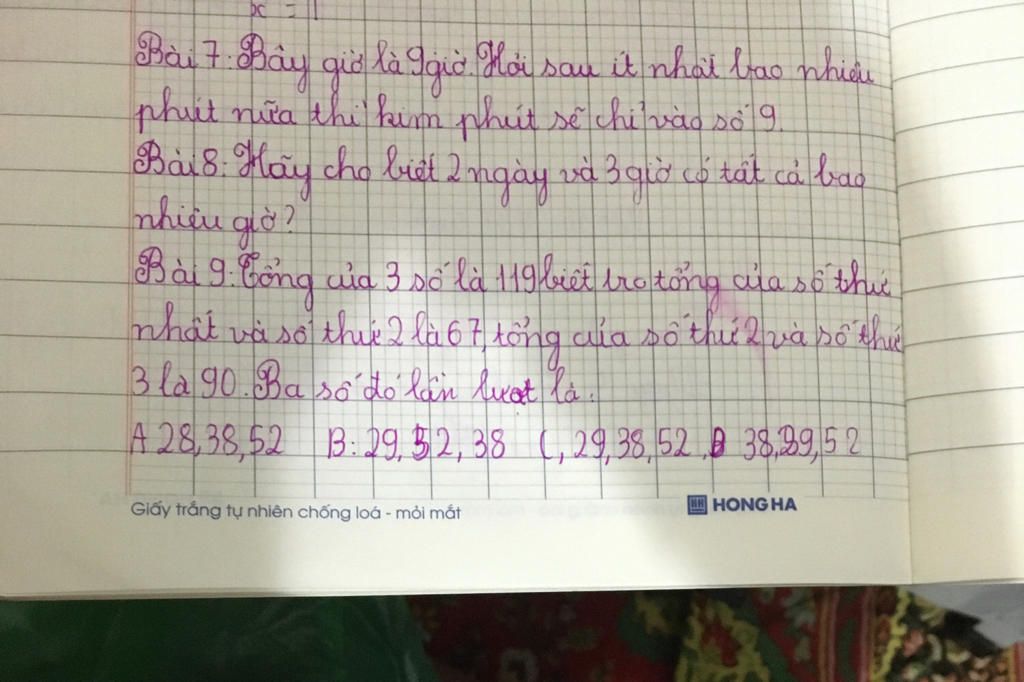 x = 11
Bài 7: Bây giờ là 9 giờ. Hỏi sau ít nhất bao nhiêu
phút nữa thì kim phút sẽ chỉ vào số 9.
Bài 8: Hãy cho biết 2 ngày và 3 giờ có tất cả bao
nhiêu giờ?
Bài 9: Tổng của 3 số là 119 biết tổng của số thứ
nhất và số thứ 2 là 67, tổng của số thứ 2 và số thứ
3 là 90. Ba số đó lần lượt là:
A 28,38,52 B: 29,52,38 C, 29,38,52 D 38,29,52
Giấy trắng tự nhiên chống loá - mỏi mắt HH HONG HA